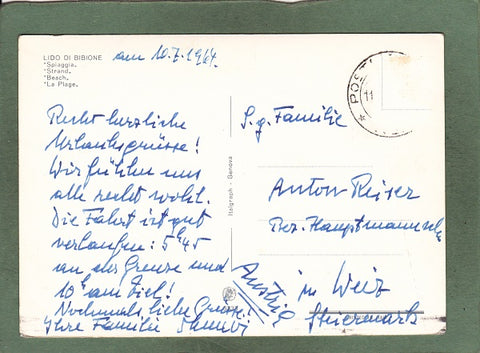 LIDO DI BIBIONE
*Spiaggia.
*Strand.
*Beach.
*La Plage.
am 10.7.1964.
Recht herzliche
Urlaubsgrüsse!
Wir fühlen uns
alle recht wohl.
Die Fahrt ist gut
verlaufen: 5h 45
an der Grenze und
10h am Ziel!
Nochmals liebe Grüsse!
Ihre Familie
Italgraph - Genova
POST
11
S.g. Familie
Anton Reiser
Bez. Hauptmannsch
in Weiz
Steiermark
Austria